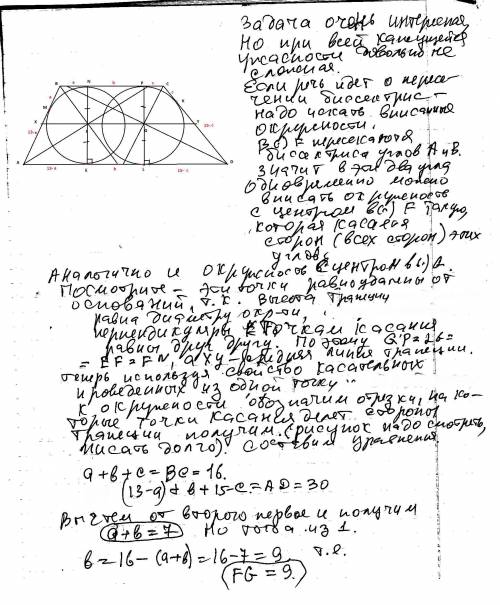 Задача очень интересная,
Но при всей кажущейся
ужасности довольно не
сложная.
Если речь идет о пересе-
чении биссектрис –
надо искать вписанные
окружности.
В (·) F пересекаются
биссектриса углов A и B.
значит в эти два угла
одновременно можно
вписать окружность
с центром в (·) F такую,
которая касается
сторон (всех сторон) этих
углов.
Аналогично и окружность с центром в (·)
Посмотрите – эти точки равноудалены от
оснований, т.к. высота трапеции
равна диаметру окр-ти,
перпендикуляры к точкам касания
равны друг другу. Поэтому
= EF = FN, а XY – средняя линия трапеции.
теперь используя свойство касательных
проведенных из одной точки
к окружности обозначим отрезки, на ко-
торые точки касания делят стороны
трапеции получим. (рисунок надо смотреть,
писать долго). Составим уравнения
a + b + c = BC = 16.
(13-a) + b + 15-c = AD = 30
Вычтем от второго первое и получим
a+b = 7 Но тогда из 1.
b = 16 - (a+b) = 16 - 7 = 9. т.е.
FG = 9.